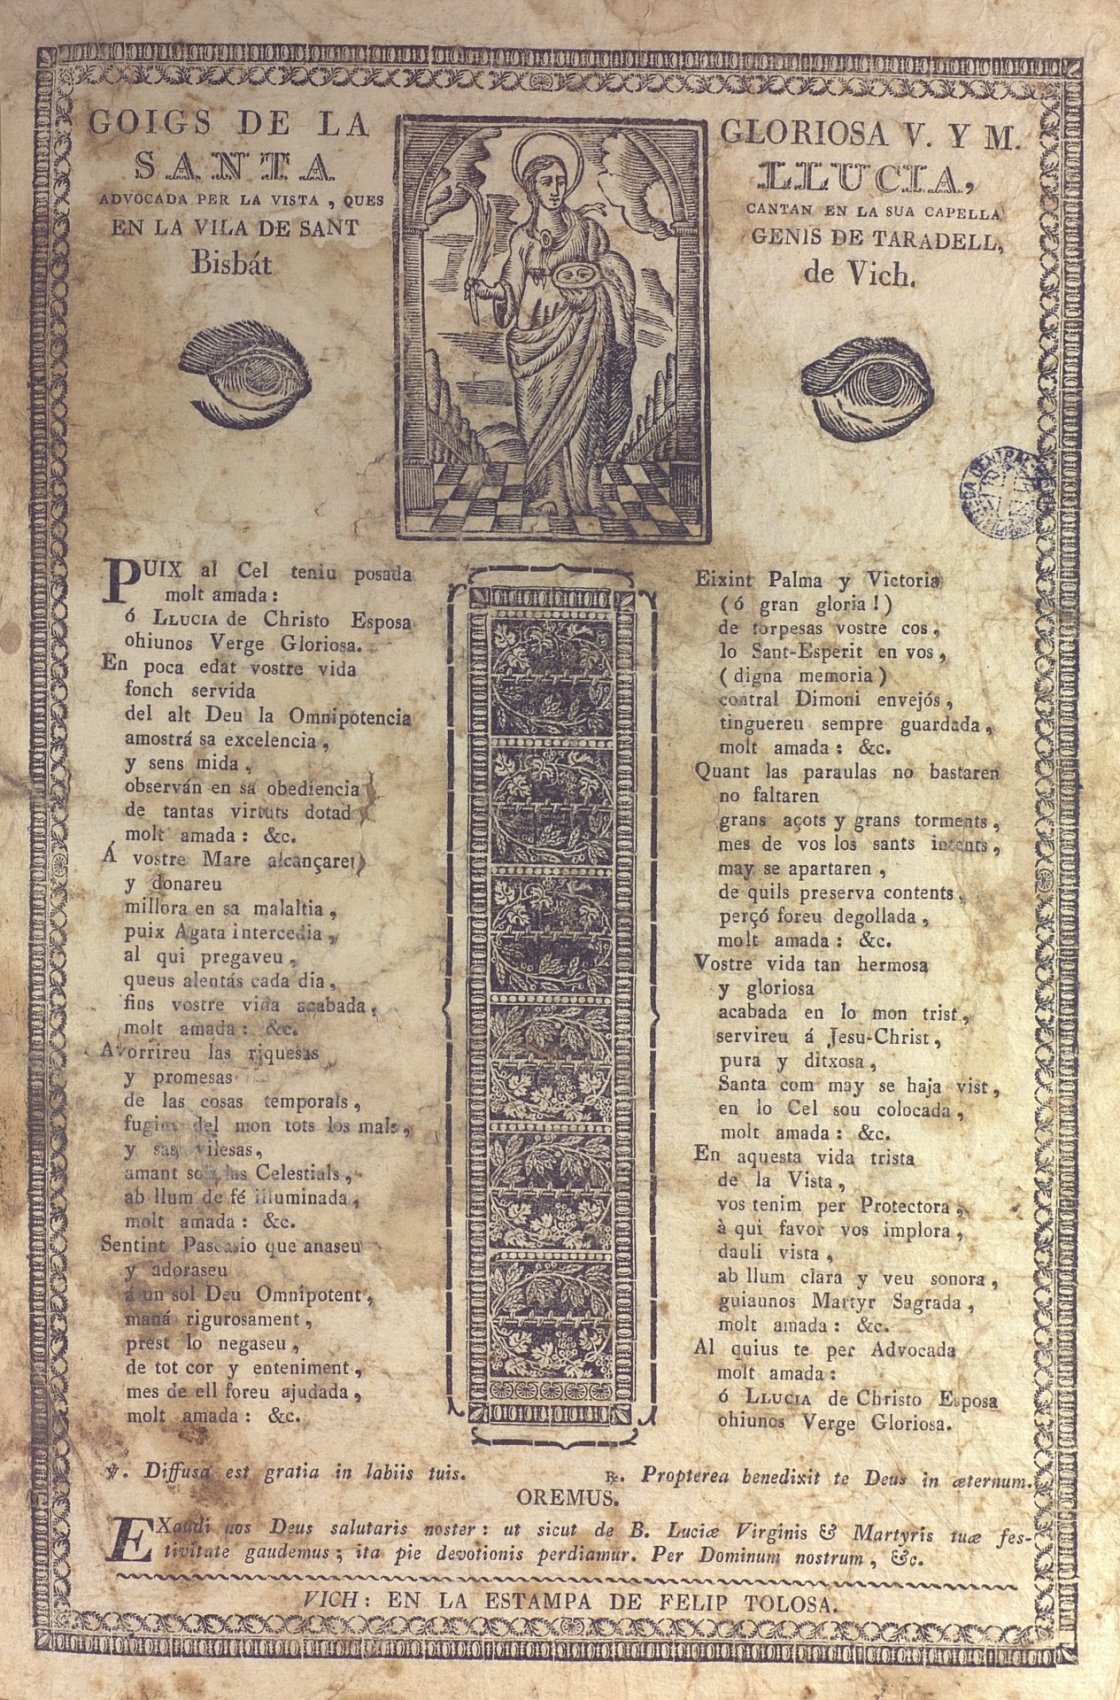 GOIGS DE LA GLORIOSA V. Y M.
SANTA LLUCIA,
ADVOCADA PER LA VISTA, QUES CANTAN EN LA SUA CAPELLA
EN LA VILA DE SANT GENIS DE TARADELL,
Bisbát de Vich.
PUIX al Cel teniu posada
molt amada:
ó LLUCIA de Christo Esposa
ohiunos Verge Gloriosa.
En poca edat vostre vida
fonch servida
del alt Deu la Omnipotencia
amostrá sa excelencia,
y sens mida,
observán en sa obediencia
de tantas virtuts dotad
molt amada: &c.
Á vostre Mare alcançareu
y donareu
millora en sa malaltia,
puix Agata intercedia,
al qui pregaveu,
queus alentás cada dia,
fins vostre vida acabada,
molt amada: &c.
Avorrireu las riquesas
y promesas
de las cosas temporals,
del mon tots los mals,
y sas vilesas,
amant las Celestials,
ab llum de fé illuminada,
molt amada: &c.
Sentint Pascasio que anaseu
y adoraseu
á un sol Deu Omnipotent,
maná rigurosament,
prest lo negaseu,
de tot cor y enteniment,
mes de ell foreu ajudada,
molt amada: &c.
Eixint Palma y Victoria
(ó gran gloria!)
de torpesas vostre cos,
lo Sant-Esperit en vos,
(digna memoria)
contral Dimoni envejós,
tinguereu sempre guardada,
molt amada: &c.
Quant las paraulas no bastaren
no faltaren
grans açots y grans torments,
mes de vos los sants intents,
may se apartaren,
de quils preserva contents,
perçó foreu degollada,
molt amada: &c.
Vostre vida tan hermosa
y gloriosa
acabada en lo mon trist,
servireu á Jesu-Christ,
pura y ditxosa,
Santa com may se haja vist,
en lo Cel sou colocada,
molt amada: &c.
En aquesta vida trista
de la Vista,
vos tenim per Protectora,
à qui favor vos implora,
dauli vista,
ab llum clara y veu sonora,
guiaunos Martyr Sagrada,
molt amada: &c.
Al quius te per Advocada
molt amada:
ó LLUCIA de Christo Esposa
ohiunos Verge Gloriosa.
℣. Diffusa est gratia in labiis tuis. ℞. Propterea benedixit te Deus in æternum.
OREMUS.
EXaudi nos Deus salutaris noster: ut sicut de B. Luciæ Virginis & Martyris tuæ fes-
tivitate gaudemus; ita pie devotionis perdiamur. Per Dominum nostrum, &c.
VICH: EN LA ESTAMPA DE FELIP TOLOSA.